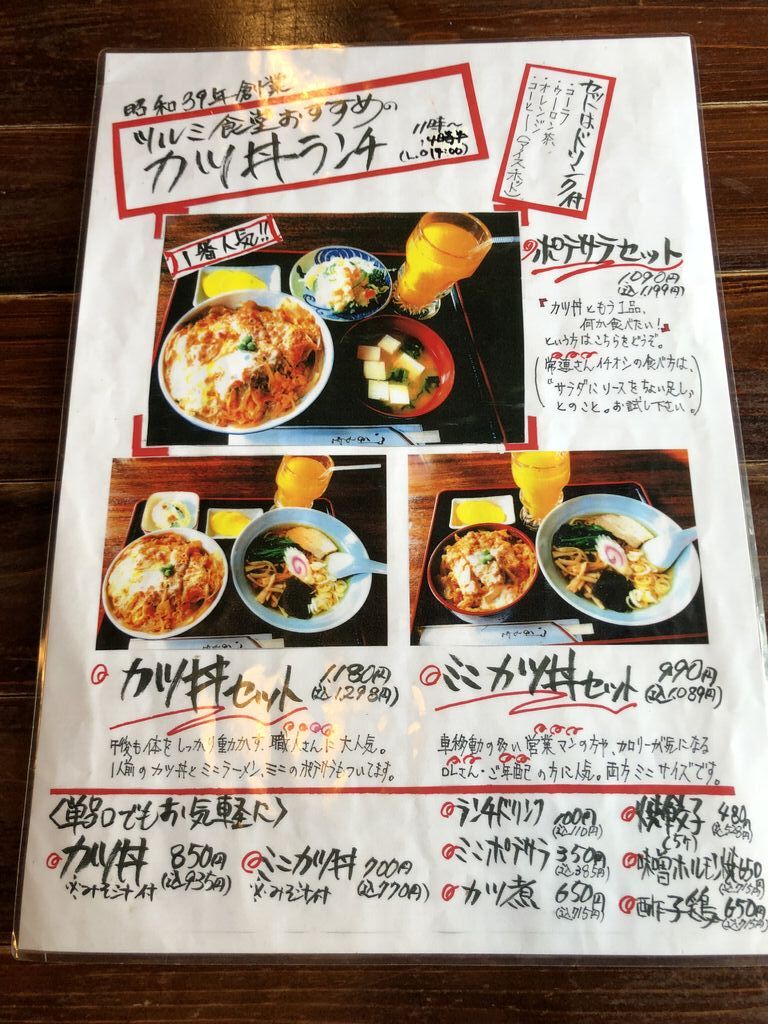 昭和39年創業
ツルミ食堂おすすめの
カツ丼ランチ
11時〜
14時半
(L.O 14:00)
セットはドリンク付
・コーラ
・ウーロン茶
・オレンジ
・コーヒー(アイス・ホット)
1番人気!!
ポテサラセット
1,090円
(込1,199円)
『カツ丼ともう1品、
何か食べたい!』
という方はこちらをどうぞ。
(常連さんイチオシの食べ方は、
"サラダにソースをちょい足し"
とのこと。お試し下さい。)
カツ丼セット 1,180円
(込1,298円)
午後も体をしっかり動かす、職人さんに大人気。
1人前のカツ丼とミニラーメン、ミニのポテサラもついてます。
ミニカツ丼セット 990円
(込1,089円)
車移動の多い営業マンの方や、カロリーが気になる
OLさん・ご年配の方に人気。両方ミニサイズです。
〈単品でもお気軽に〉
カツ丼 850円
(込935円)
※みそ汁付
ミニカツ丼 700円
(込770円)
※みそ汁付
ランチドリンク 100円
(込110円)
ミニポテサラ 350円
(込385円)
カツ煮 650円
(込715円)
焼餃子 480
(5ケ) (込528円)
味噌ホルモン焼650
(込715円)
酢子鶏 650円
(込715円)